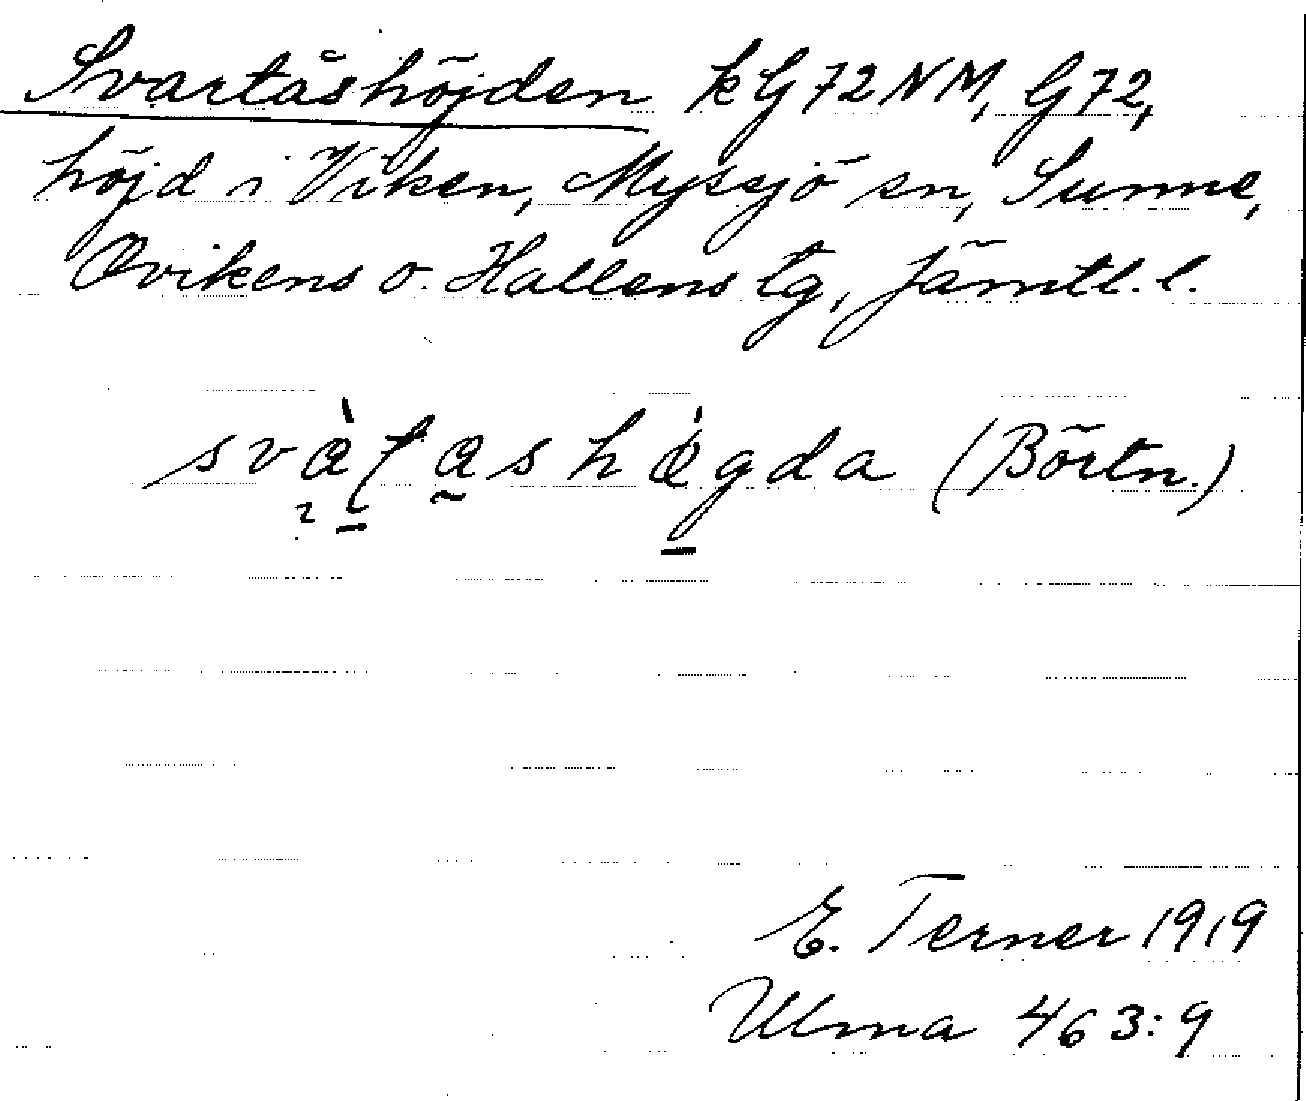 Svartåshöjden kG72NM, G72,
höjd i Viken, Myssjö sn, Sunne,
Ovikens o. Hallens tg, Jämtl. l.
(Börtn.)
E. Terner 1919
Ulma 463:9